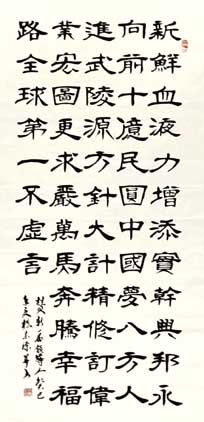 新鮮血液力增添實幹興邦永
向前十億民圓中國夢八方人
進武陵源方針大計精修訂偉
業宏圖更求嚴萬馬奔騰幸福
路全球第一不虛言